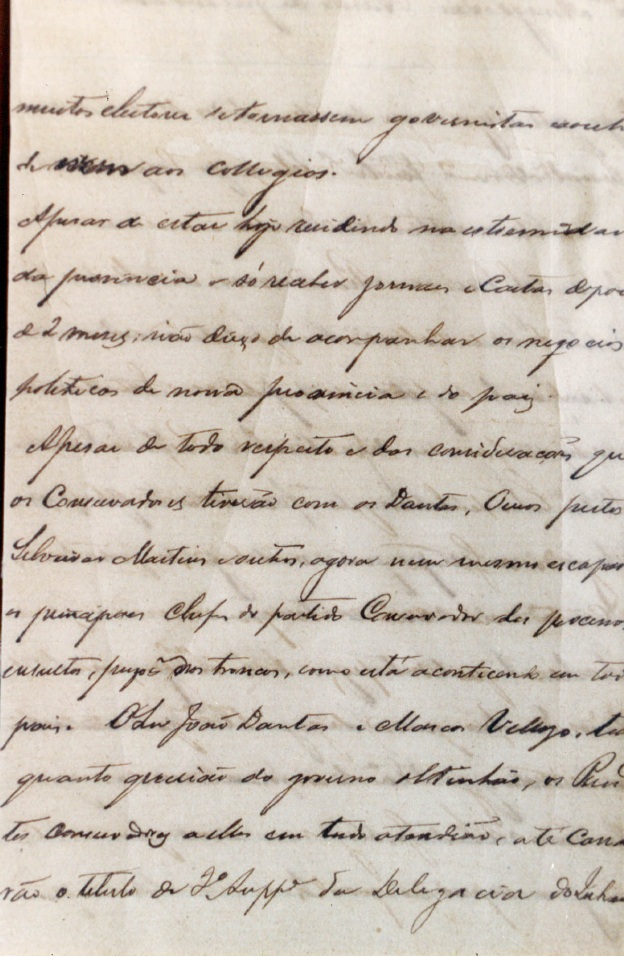 muitos eleitores se tornassem governistas
de aos collegios.
Apesar de estar hoje residindo na estremidad
da provincia e só receber jornaes e Cartas depoi
de 2 mezes, não deixo de acompanhar os negocios
politicos de nossa provincia e do paiz.
Apesar de todo respeito e das considerações que
os Conservadores tiverão com os Dantas,
Martins e outros, agora nem mesmo escapão
os principaes Chefes do partido Conservador dos processos,
insultos, prizão nos troncos, como está acontecendo em todo
paiz. O Snr João Dantas e Marcos Velloso, tud
quanto querião do governo obtinhão, os Presi
tes conservadores a elles em tudo attendião, até
rão o titulo de Supp.e da Delegacia do